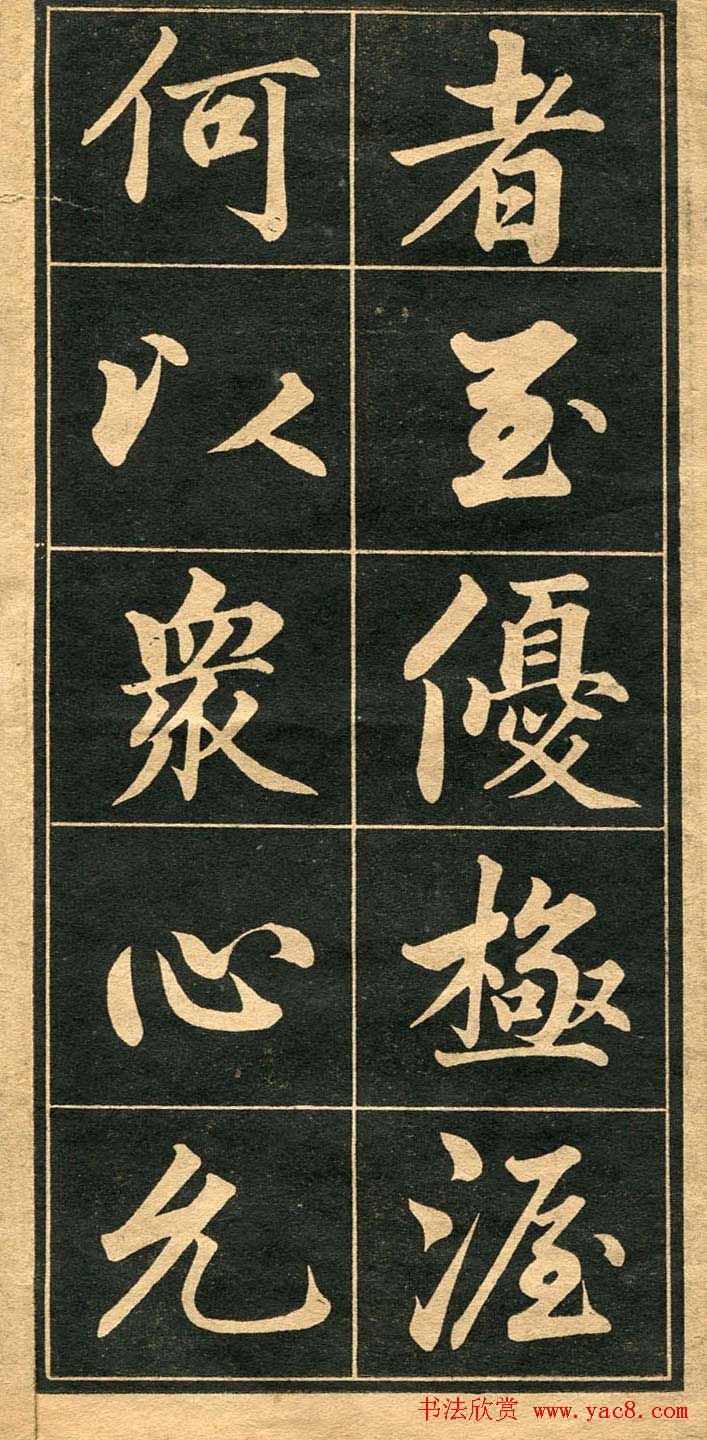 者至優極渥
何以衆心允
书法欣赏 www.yac8.com